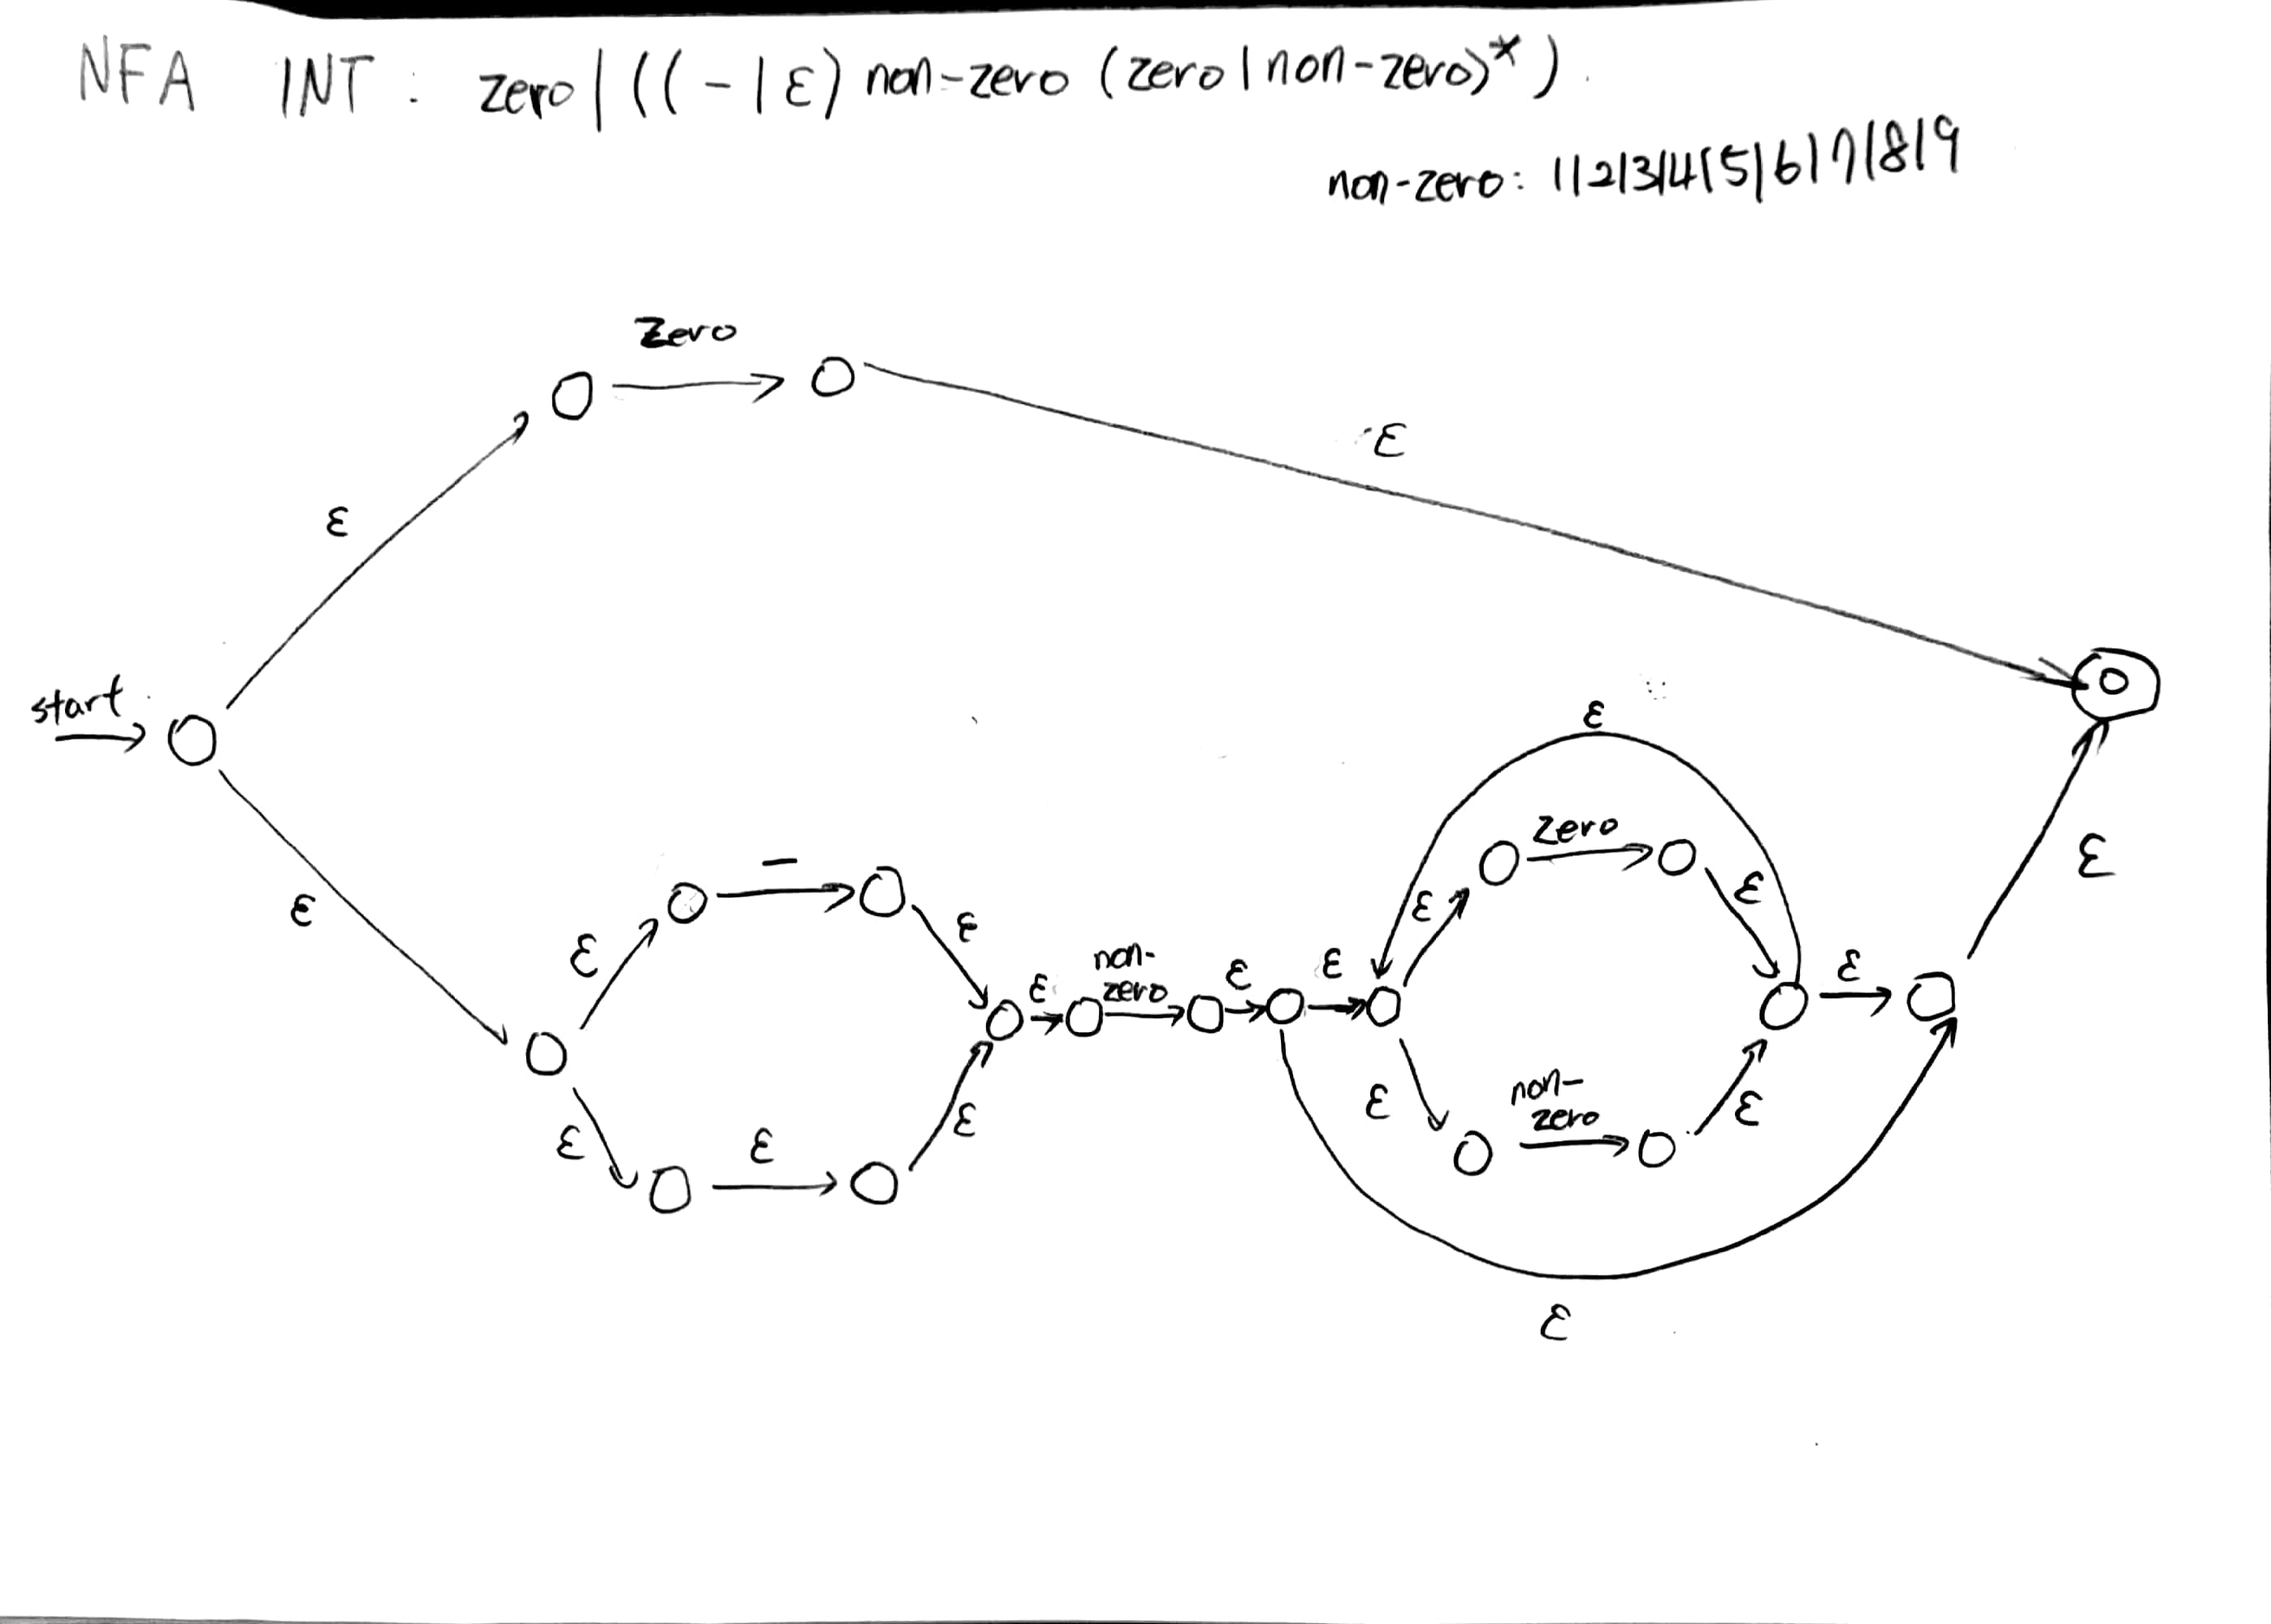 NFA INT : zero | ((-|ε) non-zero (zero|non-zero)*)
non-zero: 1|2|3|4|5|6|7|8|9
zero
ε
ε
start
ε
zero
ε
ε
ε
-
ε
ε
non-
zero
ε
ε
ε
ε
ε
ε
ε
ε
non-
zero
ε
ε
ε
ε
ε